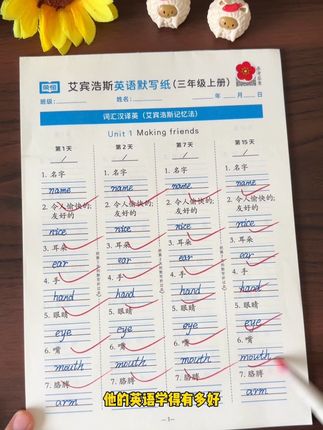 荣恒
艾宾浩斯英语默写纸(三年级上册)
班级: 姓名: 年 月 日
词汇汉译英(艾宾浩斯记忆法)
Unit 1 Making friends
第1天 第2天 第7天 第15天
1. 名字 1. 名字 1. 名字 1. 名字
name name name name
2. 令人愉快的; 2. 令人愉快的; 2. 令人愉快的; 2. 令人愉快的;
友好的 友好的 友好的 友好的
nice nice nice nice
3. 耳朵 3. 耳朵 3. 耳朵 3. 耳朵
ear ear ear ear
4. 手 4. 手 4. 手 4. 手
hand hand hand hand
5. 眼睛 5. 眼睛 5. 眼睛 5. 眼睛
eye eye eye eye
6. 嘴 6. 嘴 6. 嘴 6. 嘴
mouth mouth mouth mouth
7. 胳膊 7. 胳膊 7. 胳膊 7. 胳膊
arm arm
他的英语学得有多好
-1-